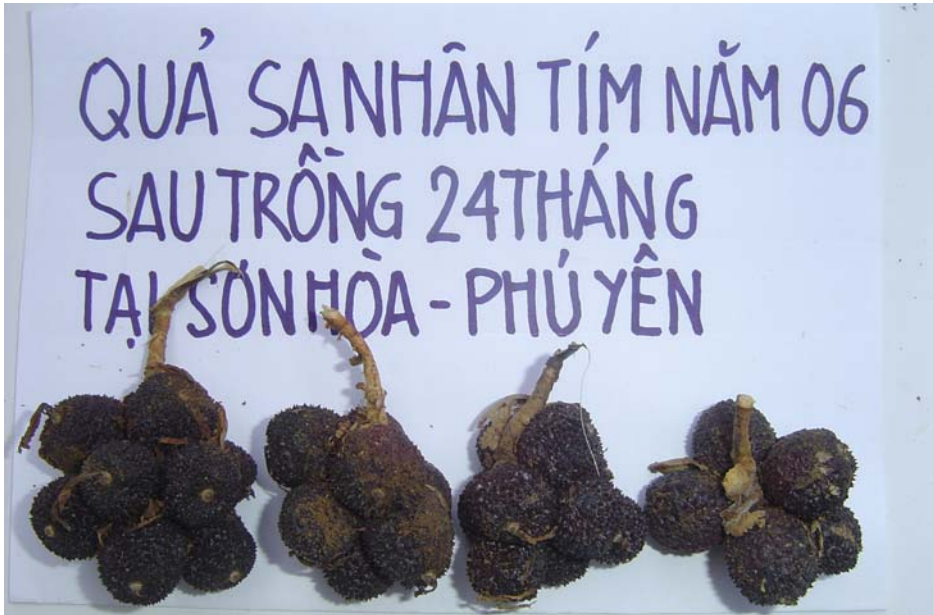 QUẢ SA NHÂN TÍM NĂM 06
SAU TRỒNG 24 THÁNG
TẠI SƠN HÒA - PHÚ YÊN